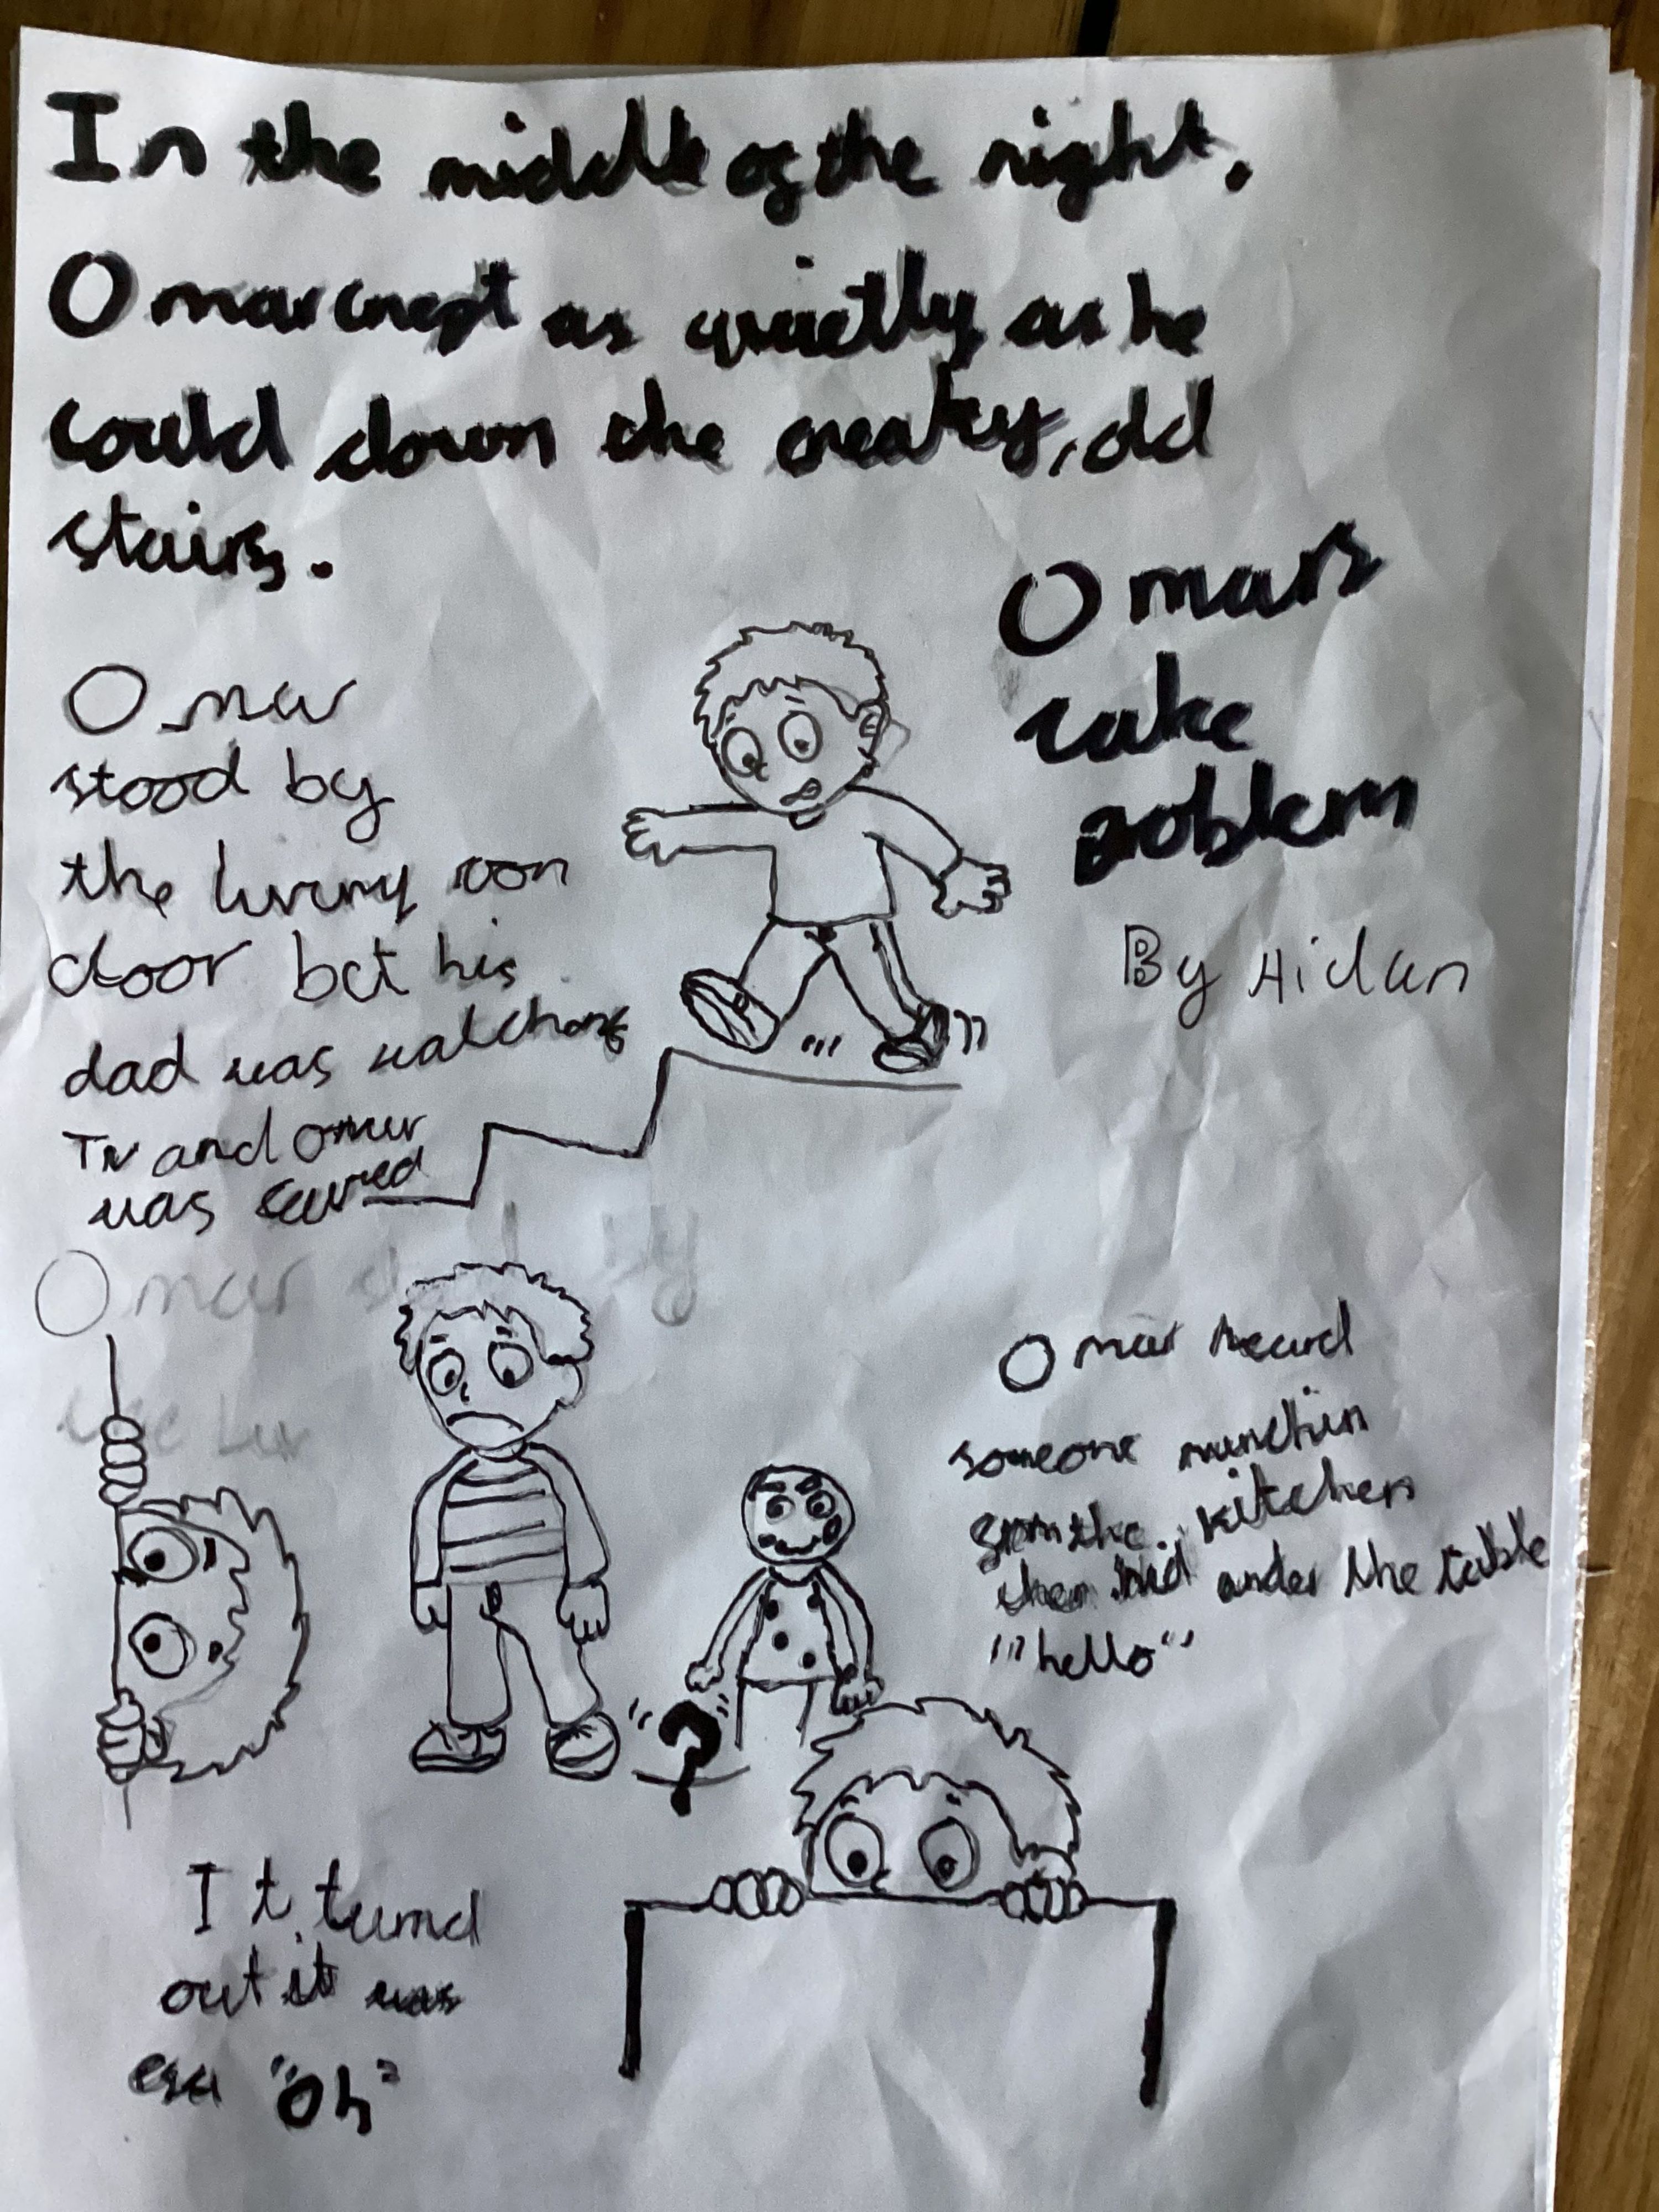 In the middle of the night,
Omar crept as quietly as he
could down the creaky, old
stairs.
Omars
cake
problem
By Aidan
Omar
stood by
the living room
door but his
dad was watching
TV and Omar
was scared
Omar stood by
Omar heard
someone munchin
from the kitchen
then hid under the table
"hello"
?
It turnd
out it was
"oh"